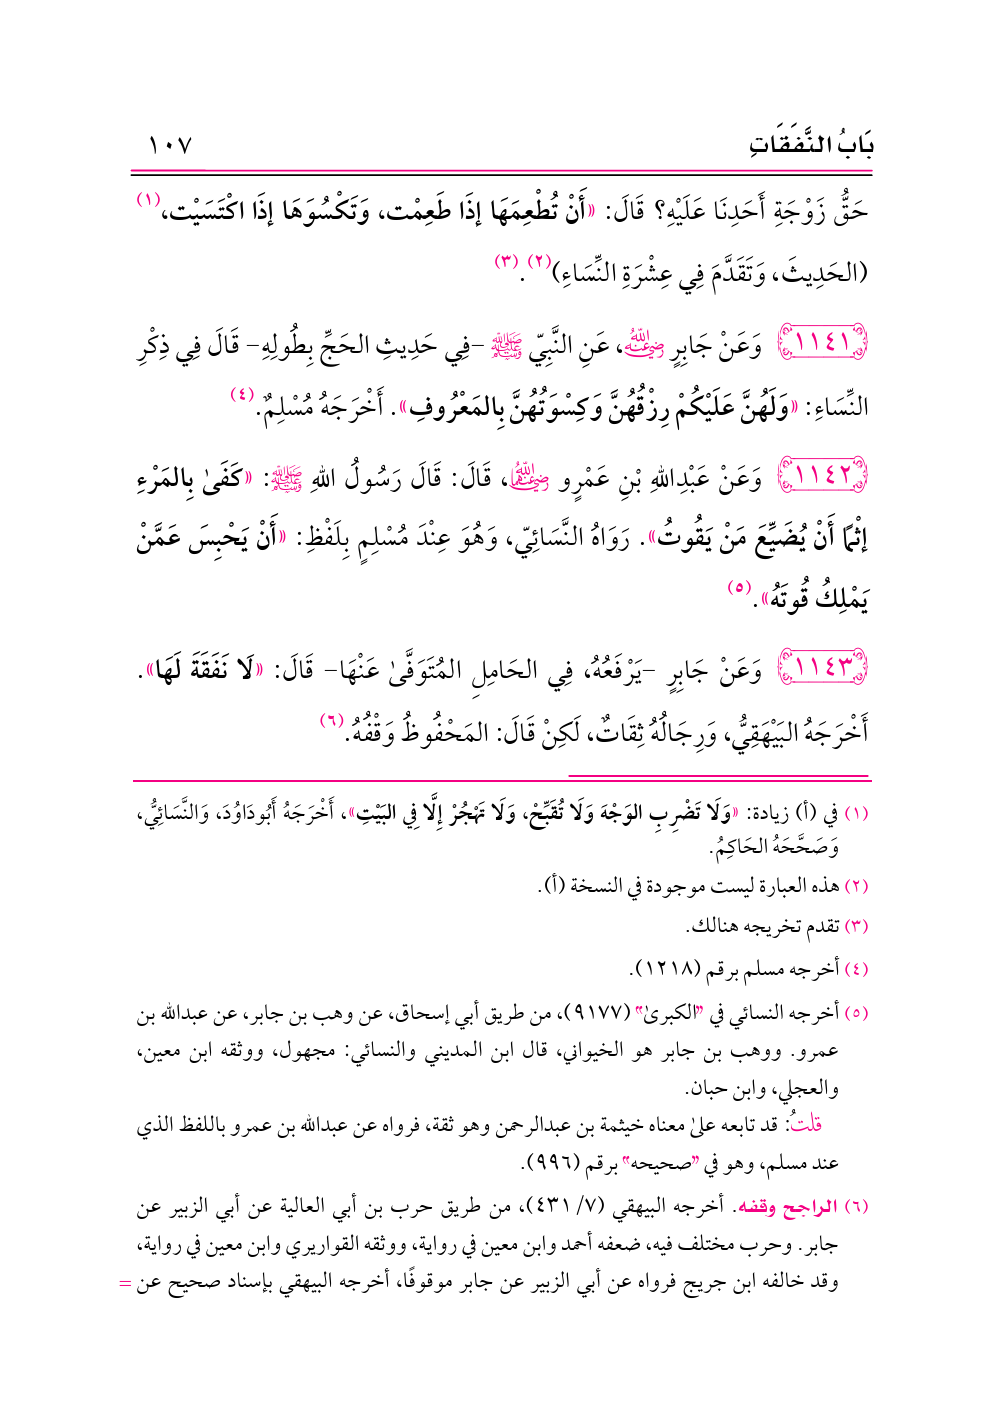 بَابُ النَّفَقَاتِ ١٠٧
حَقُّ زَوْجَةِ أَحَدِنَا عَلَيْهِ؟ قَالَ: «أَنْ تُطْعِمَهَا إِذَا طَعِمْت، وَتَكْسُوَهَا إِذَا اكْتَسَيْت،(١)
(الحَدِيثَ، وَتَقَدَّمَ فِي عِشْرَةِ النِّسَاءِ)(٢).(٣)
١١٤١ وَعَنْ جَابِرٍ رضي الله عنه، عَنِ النَّبِيِّ ﷺ -فِي حَدِيثِ الحَجِّ بِطُولِهِ- قَالَ فِي ذِكْرِ
النِّسَاءِ: «وَلَهُنَّ عَلَيْكُمْ رِزْقُهُنَّ وَكِسْوَتُهُنَّ بِالمَعْرُوفِ». أَخْرَجَهُ مُسْلِمٌ.(٤)
١١٤٢ وَعَنْ عَبْدِاللهِ بْنِ عَمْرٍو رضي الله عنهما، قَالَ: قَالَ رَسُولُ اللهِ ﷺ: «كَفَىٰ بِالمَرْءِ
إِثْمًا أَنْ يُضَيِّعَ مَنْ يَقُوتُ». رَوَاهُ النَّسَائِيّ، وَهُوَ عِنْدَ مُسْلِمٍ بِلَفْظِ: «أَنْ يَحْبِسَ عَمَّنْ
يَمْلِكُ قُوتَهُ».(٥)
١١٤٣ وَعَنْ جَابِرٍ -يَرْفَعُهُ، فِي الحَامِلِ المُتَوَفَّىٰ عَنْهَا- قَالَ: «لَا نَفَقَةَ لَهَا».
أَخْرَجَهُ البَيْهَقِيُّ، وَرِجَالُهُ ثِقَاتٌ، لَكِنْ قَالَ: المَحْفُوظُ وَقْفُهُ.(٦)
(١) في (أ) زيادة: «وَلَا تَضْرِبِ الوَجْهَ وَلَا تُقَبِّحْ، وَلَا تَهْجُرْ إِلَّا فِي البَيْتِ»، أَخْرَجَهُ أَبُودَاوُدَ، وَالنَّسَائِيُّ،
وَصَحَّحَهُ الحَاكِمُ.
(٢) هذه العبارة ليست موجودة في النسخة (أ).
(٣) تقدم تخريجه هنالك.
(٤) أخرجه مسلم برقم (١٢١٨).
(٥) أخرجه النسائي في "الكبرىٰ" (٩١٧٧)، من طريق أبي إسحاق، عن وهب بن جابر، عن عبدالله بن
عمرو. ووهب بن جابر هو الخيواني، قال ابن المديني والنسائي: مجهول، ووثقه ابن معين،
والعجلي، وابن حبان.
قلتُ: قد تابعه علىٰ معناه خيثمة بن عبدالرحمن وهو ثقة، فرواه عن عبدالله بن عمرو باللفظ الذي
عند مسلم، وهو في "صحيحه" برقم (٩٩٦).
(٦) الراجح وقفه. أخرجه البيهقي (٧/ ٤٣١)، من طريق حرب بن أبي العالية عن أبي الزبير عن
جابر. وحرب مختلف فيه، ضعفه أحمد وابن معين في رواية، ووثقه القواريري وابن معين في رواية،
وقد خالفه ابن جريج فرواه عن أبي الزبير عن جابر موقوفًا، أخرجه البيهقي بإسناد صحيح عن =